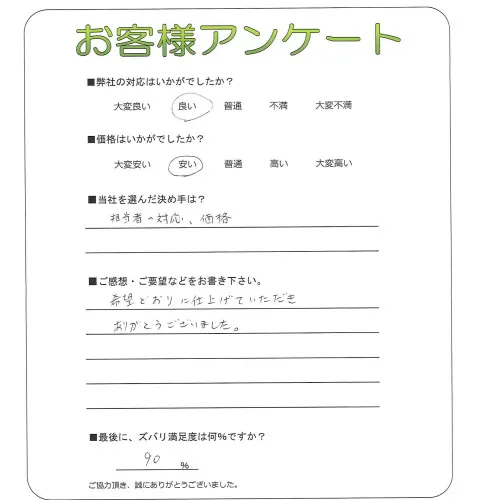 お客様アンケート
■弊社の対応はいかがでしたか？
大変良い 良い 普通 不満 大変不満
■価格はいかがでしたか？
大変安い 安い 普通 高い 大変高い
■当社を選んだ決め手は？
担当者の対応、価格
■ご感想・ご要望などをお書き下さい。
希望どおりに仕上げていただき
ありがとうございました。
■最後に、ズバリ満足度は何％ですか？
90 ％
ご協力頂き、誠にありがとうございました。